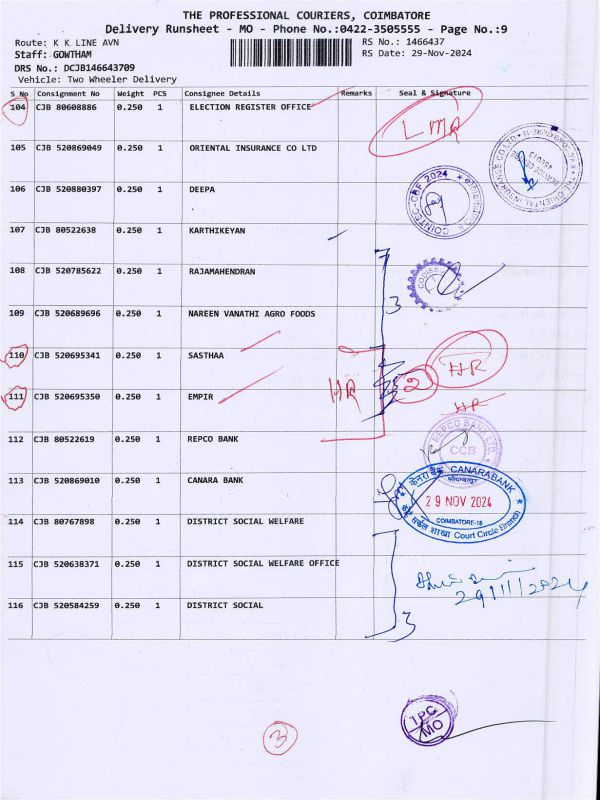 THE PROFESSIONAL COURIERS, COIMBATORE
Delivery Runsheet - MO - Phone No.:0422-3505555 - Page No.:9
Route: K K LINE AVN RS No.: 1466437
Staff: GOWTHAM RS Date: 29-Nov-2024
DRS No.: DCJB146643709
Vehicle: Two Wheeler Delivery
S No Consignment No Weight PCS Consignee Details Remarks Seal & Signature
104 CJB 80608886 0.250 1 ELECTION REGISTER OFFICE
105 CJB 520869049 0.250 1 ORIENTAL INSURANCE CO LTD
106 CJB 520880397 0.250 1 DEEPA
COINTEC-CRF 2024
107 CJB 80522638 0.250 1 KARTHIKEYAN
108 CJB 520785622 0.250 1 RAJAMAHENDRAN
3
109 CJB 520689696 0.250 1 NAREEN VANATHI AGRO FOODS
110 CJB 520695341 0.250 1 SASTHAA
HR
HR 2
111 CJB 520695350 0.250 1 EMPIR
HR
112 CJB 80522619 0.250 1 REPCO BANK
REPCO BANK LTD.
CCB
113 CJB 520869010 0.250 1 CANARA BANK
केनरा बैंक CANARA BANK
29 NOV 2024
COIMBATORE-18
Court Circle Branch
114 CJB 80767898 0.250 1 DISTRICT SOCIAL WELFARE
115 CJB 520638371 0.250 1 DISTRICT SOCIAL WELFARE OFFICE
29/11/2024
116 CJB 520584259 0.250 1 DISTRICT SOCIAL
3
TPC
MO
3